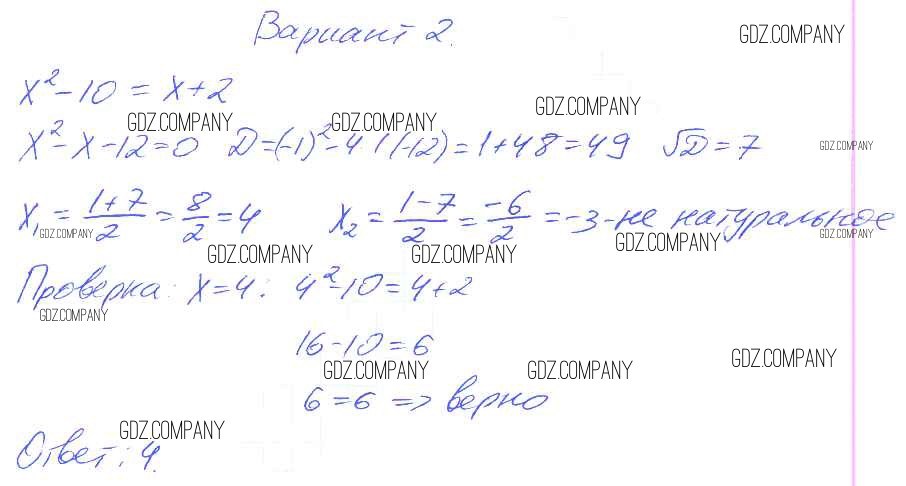 Вариант 2.
GDZ.COMPANY
x² - 10 = x + 2
GDZ.COMPANY
GDZ.COMPANY GDZ.COMPANY
x² - x - 12 = 0 D = (-1)² - 4·1·(-12) = 1 + 48 = 49 √D = 7
GDZ.COMPANY
x₁ = (1+7)/2 = 8/2 = 4 x₂ = (1-7)/2 = -6/2 = -3 - не натуральное
GDZ.COMPANY GDZ.COMPANY GDZ.COMPANY
GDZ.COMPANY GDZ.COMPANY
Проверка: x = 4: 4² - 10 = 4 + 2
GDZ.COMPANY
16 - 10 = 6
GDZ.COMPANY GDZ.COMPANY GDZ.COMPANY
6 = 6 => верно
GDZ.COMPANY
Ответ: 4.